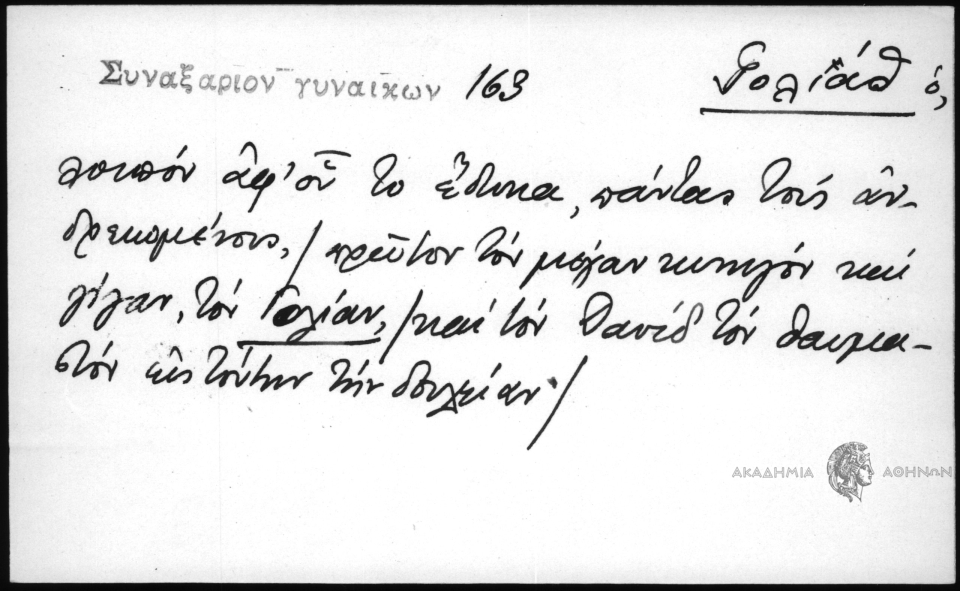 Συναξάριον γυναικῶν 163
Γολιάθ ὁ,
λοιπόν ἀφ' οὗ τὸ ἔδωκα, πάντας τοὺς ἀν-
δρεκωμένους, / πρῶτον τὸν μέγαν κυνηγόν καὶ
γίγαν, τόν Γολίαν, / καὶ τόν Δαυΐδ τόν θαυμα-
στόν εἰς τούτην τήν δουλείαν /
ΑΚΑΔΗΜΙΑ ΑΘΗΝΩΝ